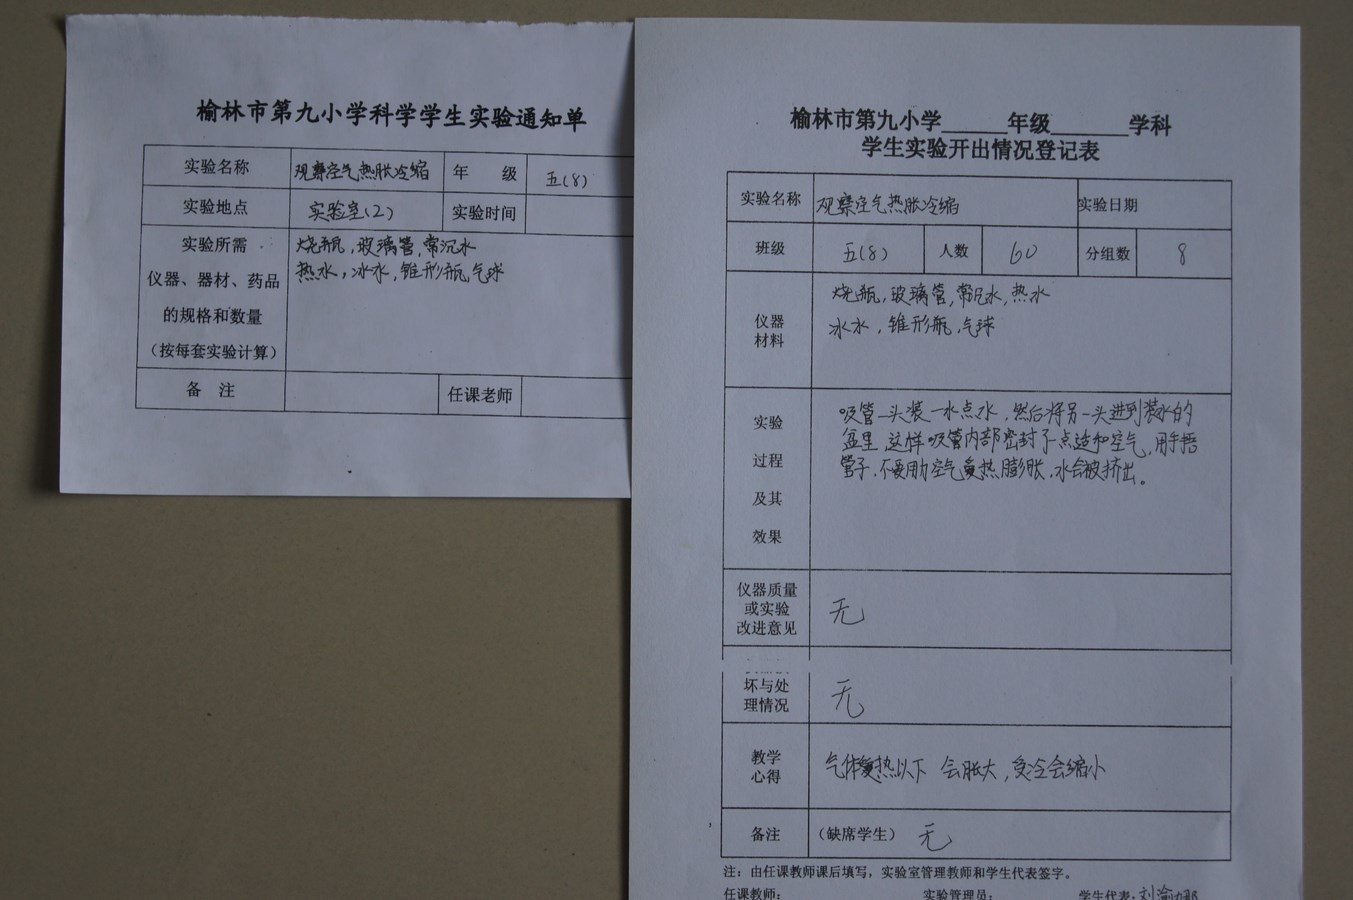 榆林市第九小学科学学生实验通知单
实验名称 观察空气热胀冷缩 年 级 五(8)
实验地点 实验室(2) 实验时间
实验所需
仪器、器材、药品
的规格和数量
(按每套实验计算)
烧瓶,玻璃管,常沉水
热水,冰水,锥形瓶,气球
备 注 任课老师
榆林市第九小学______年级_______学科
学生实验开出情况登记表
实验名称 观察空气热胀冷缩 实验日期
班级 五(8) 人数 60 分组数 8
仪器
材料
烧瓶,玻璃管,常沉水,热水
冰水,锥形瓶,气球
实验
过程
及其
效果
吸管一头装一水点水,然后将另一头进到装水的
盆里,这样吸管内部密封了一点边和空气,用手捂
管子,不要用力空气受热膨胀,水会被挤出。
仪器质量
或实验
改进意见
无
坏与处
理情况
无
教学
心得
气体受热以下 会胀大,受冷会缩小
备注 (缺席学生) 无
注:由任课教师课后填写,实验室管理教师和学生代表签字。
任课教师: 实验管理员: 学生代表: